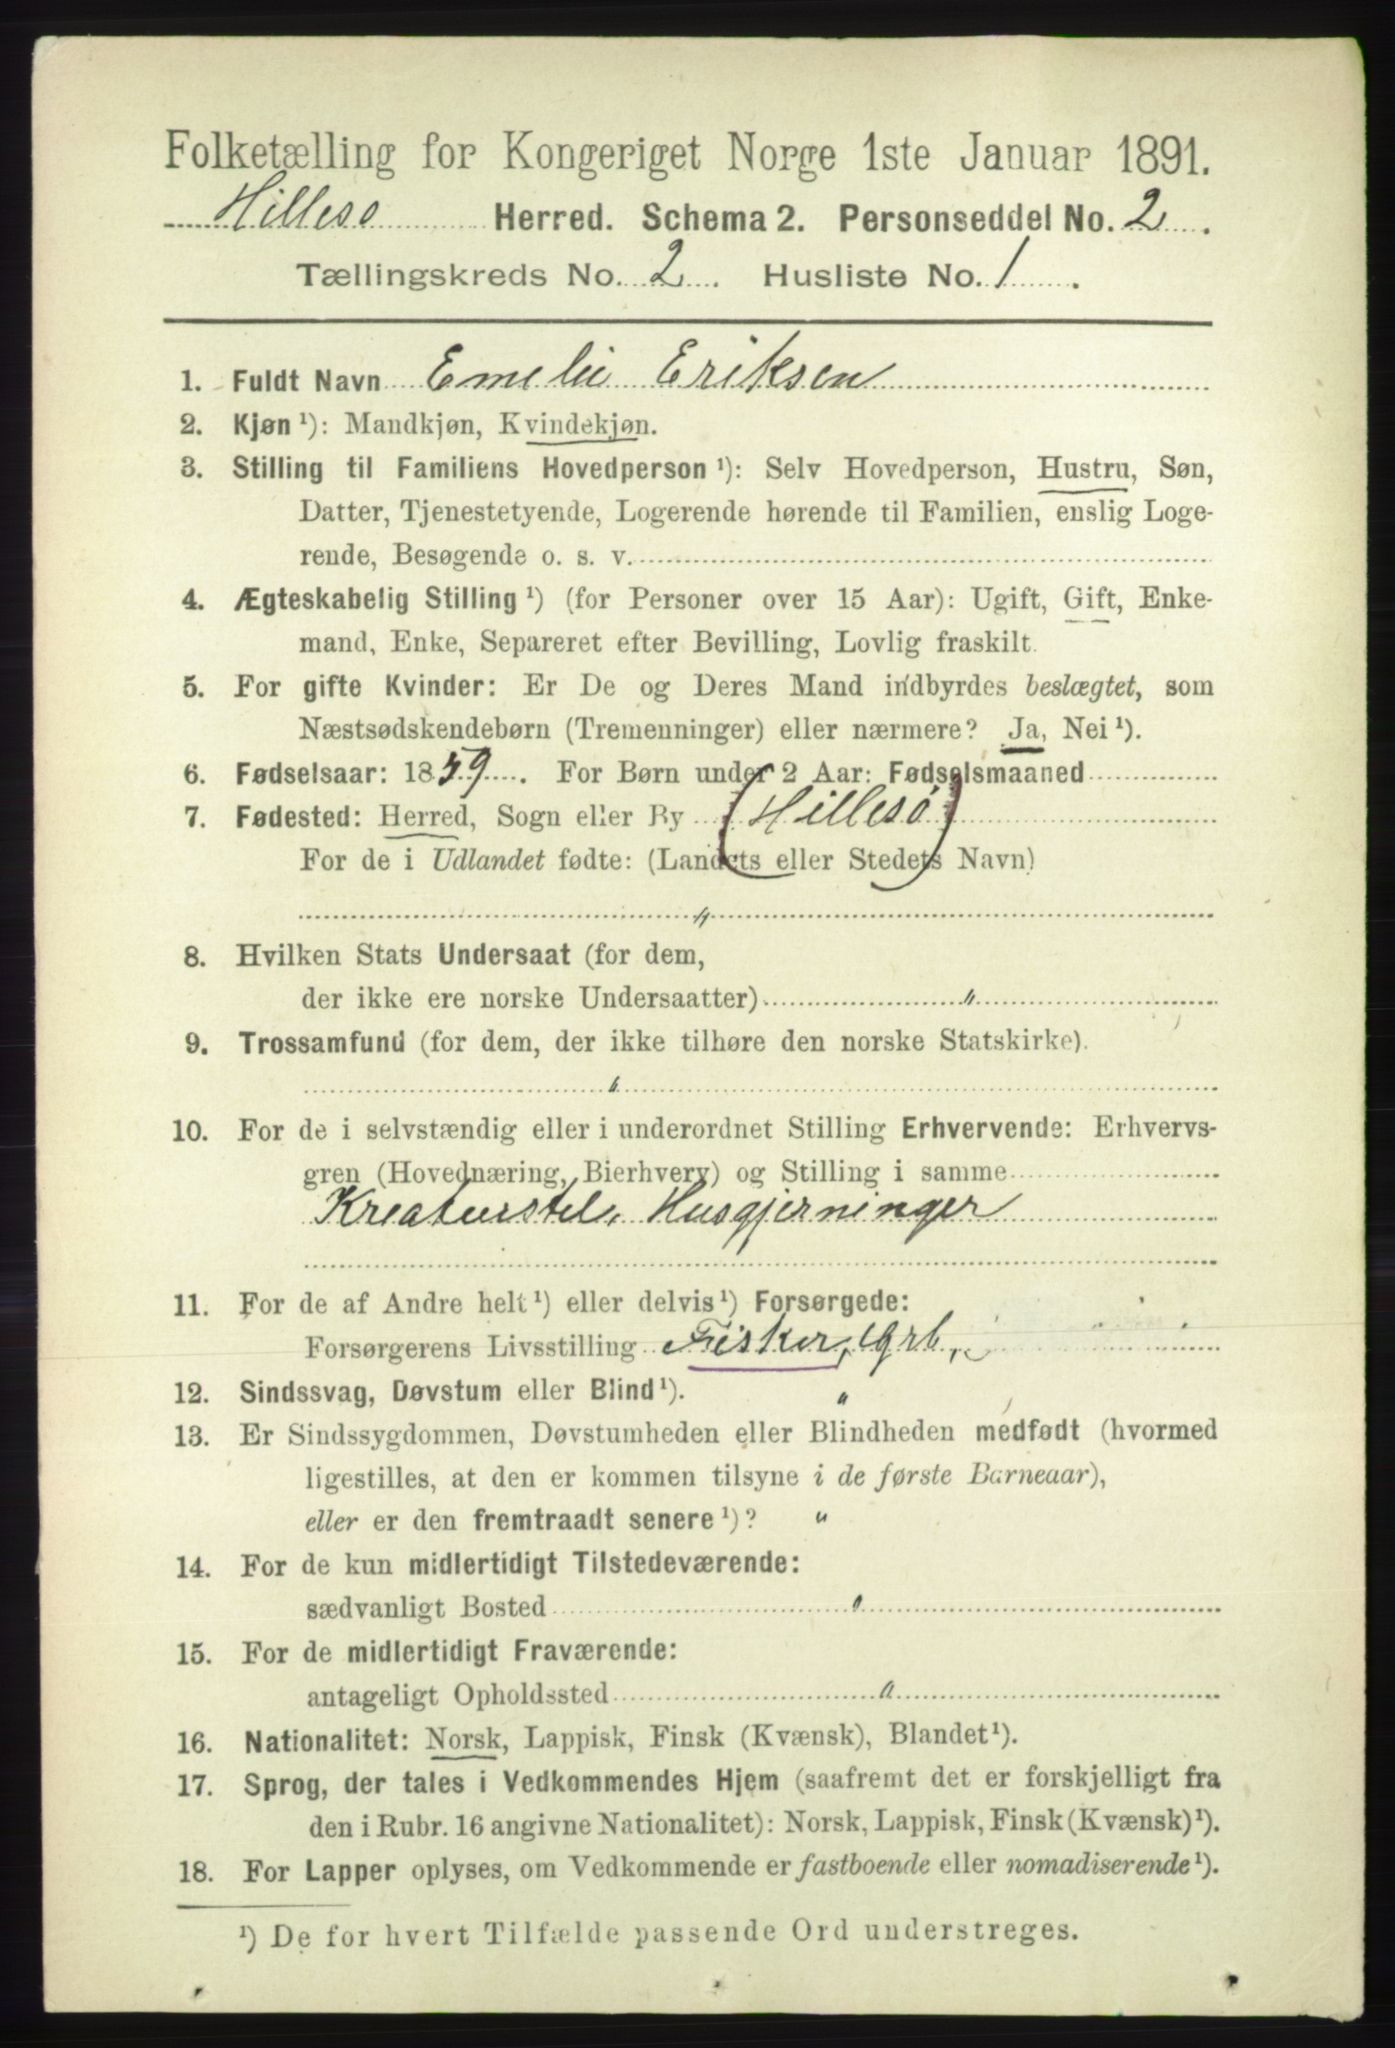 Folketælling for Kongeriget Norge 1ste Januar 1891.
Hillesø Herred. Schema 2. Personseddel No. 2.
Tællingskreds No. 2. Husliste No. 1.
1. Fuldt Navn Emelie Eriksen
2. Kjøn ¹): Mandkjøn, Kvindekjøn.
3. Stilling til Familiens Hovedperson ¹): Selv Hovedperson, Hustru, Søn,
Datter, Tjenestetyende, Logerende hørende til Familien, enslig Loge-
rende, Besøgende o. s. v.
4. Ægteskabelig Stilling ¹) (for Personer over 15 Aar): Ugift, Gift, Enke-
mand, Enke, Separeret efter Bevilling, Lovlig fraskilt.
5. For gifte Kvinder: Er De og Deres Mand indbyrdes beslægtet, som
Næstsødskendebørn (Tremenninger) eller nærmere? Ja, Nei ¹).
6. Fødselsaar: 1859. For Børn under 2 Aar: Fødselsmaaned
7. Fødested: Herred, Sogn eller By (Hillesø)
For de i Udlandet fødte: (Landets eller Stedets Navn)
"
8. Hvilken Stats Undersaat (for dem,
der ikke ere norske Undersaatter) "
9. Trossamfund (for dem, der ikke tilhøre den norske Statskirke).
"
10. For de i selvstændig eller i underordnet Stilling Erhvervende: Erhvervs-
gren (Hovednæring, Bierhverv) og Stilling i samme
Kreaturstel, Husgjerninger
11. For de af Andre helt ¹) eller delvis ¹) Forsørgede:
Forsørgerens Livsstilling Fisker, Grb,
12. Sindssvag, Døvstum eller Blind ¹). "
13. Er Sindssygdommen, Døvstumheden eller Blindheden medfødt (hvormed
ligestilles, at den er kommen tilsyne i de første Barneaar),
eller er den fremtraadt senere ¹)? "
14. For de kun midlertidigt Tilstedeværende:
sædvanligt Bosted "
15. For de midlertidigt Fraværende:
antageligt Opholdssted "
16. Nationalitet: Norsk, Lappisk, Finsk (Kvænsk), Blandet ¹).
17. Sprog, der tales i Vedkommendes Hjem (saafremt det er forskjelligt fra
den i Rubr. 16 angivne Nationalitet): Norsk, Lappisk, Finsk (Kvænsk) ¹).
18. For Lapper oplyses, om Vedkommende er fastboende eller nomadiserende ¹).
¹) De for hvert Tilfælde passende Ord understreges.